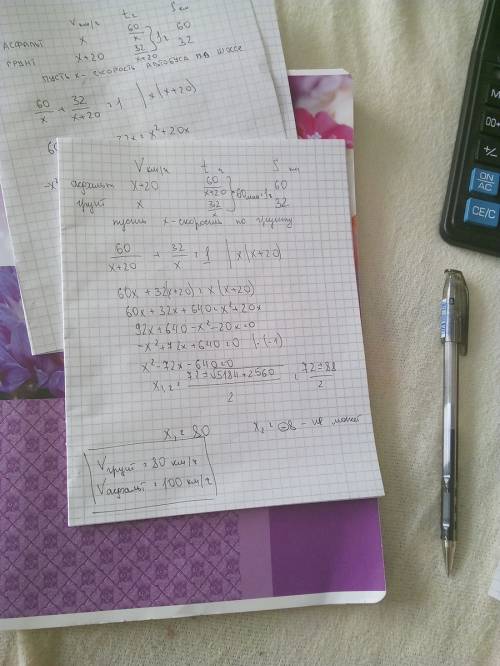 V км/ч t ч S км
АСФАЛЬТ x 60/x 60
ГРУНТ x+20 32/x+20 } 1ч 32
ПУСТЬ x - СКОРОСТЬ АВТОБУСА ПО ШОССЕ
60/x + 32/x+20 = 1 | x(x+20)
60
= x²+20x
-x²
V км/ч t ч S км
асфальт x+20 60/x+20 60
грунт x 32/x } 60мин=1ч 32
пусть x - скорость по грунту
60/x+20 + 32/x = 1 | x(x+20)
60x + 32(x+20) = x(x+20)
60x + 32x + 640 = x²+20x
92x+640-x²-20x=0
-x²+72x+640=0 |·(-1)
x²-72x-640=0
x₁,₂ = 72±√5184+2560/2 = 72±88/2
x₁ = 80 x₂ = -8 - не может
Vгрунт = 80 км/ч
Vасфальт = 100 км/ч
ON/AC
CE/C
00
+/-
M